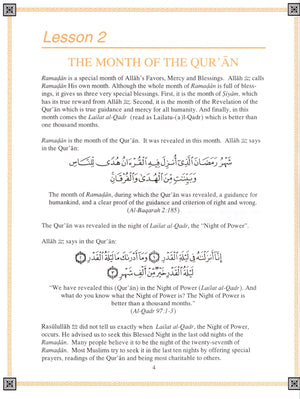 Lesson 2
THE MONTH OF THE QUR'ĀN
Ramaḍān is a special month of Allāh's Favors, Mercy and Blessings. Allāh ﷻ calls
Ramaḍān His own Month. Although the whole month of Ramaḍān is full of bless-
ings, it gives us three very special blessings. First, it is the month of Siyām, which
has its true reward from Allāh ﷻ. Second, it is the month of the Revelation of the
Qur'ān which is true guidance and mercy for all humanity. And finally, in this
month comes the Lailat al-Qadr (read as Lailatu-(a)l-Qadr) which is better than
one thousand months.
Ramaḍān is the month of the Qur'ān. It was revealed in this month. Allāh ﷻ says
in the Qur'ān:
شَهْرُ رَمَضَانَ الَّذِي أُنزِلَ فِيهِ الْقُرْآنُ هُدًى لِّلنَّاسِ
وَبَيِّنَاتٍ مِّنَ الْهُدَى وَالْفُرْقَانِ
The month of Ramaḍān, during which the Qur'ān was revealed, a guidance for
humankind, and a clear proof of the guidance and criterion of right and wrong.
(Al-Baqarah 2:185)
The Qur'ān was revealed in the night of Lailat al-Qadr, the "Night of Power".
Allāh ﷻ says in the Qur'ān:
إِنَّا أَنزَلْنَاهُ فِي لَيْلَةِ الْقَدْرِ ١ وَمَا أَدْرَاكَ مَا لَيْلَةُ الْقَدْرِ ٢
لَيْلَةُ الْقَدْرِ خَيْرٌ مِّنْ أَلْفِ شَهْرٍ ٣
"We have revealed this (Qur'ān) in the Night of Power (Lailat al-Qadr). And
what do you know what the Night of Power is? The Night of Power is
better than a thousand months."
(Al-Qadr 97:1-3)
Rasūlullāh ﷺ did not tell us exactly when Lailat al-Qadr, the Night of Power,
occurs. He advised us to seek this Blessed Night in the last odd nights of the
Ramaḍān. Many people believe it to be the night of the twenty-seventh of
Ramaḍān. Most Muslims try to seek it in the last ten nights by offering special
prayers, readings of the Qur'ān and being most charitable to others.
4